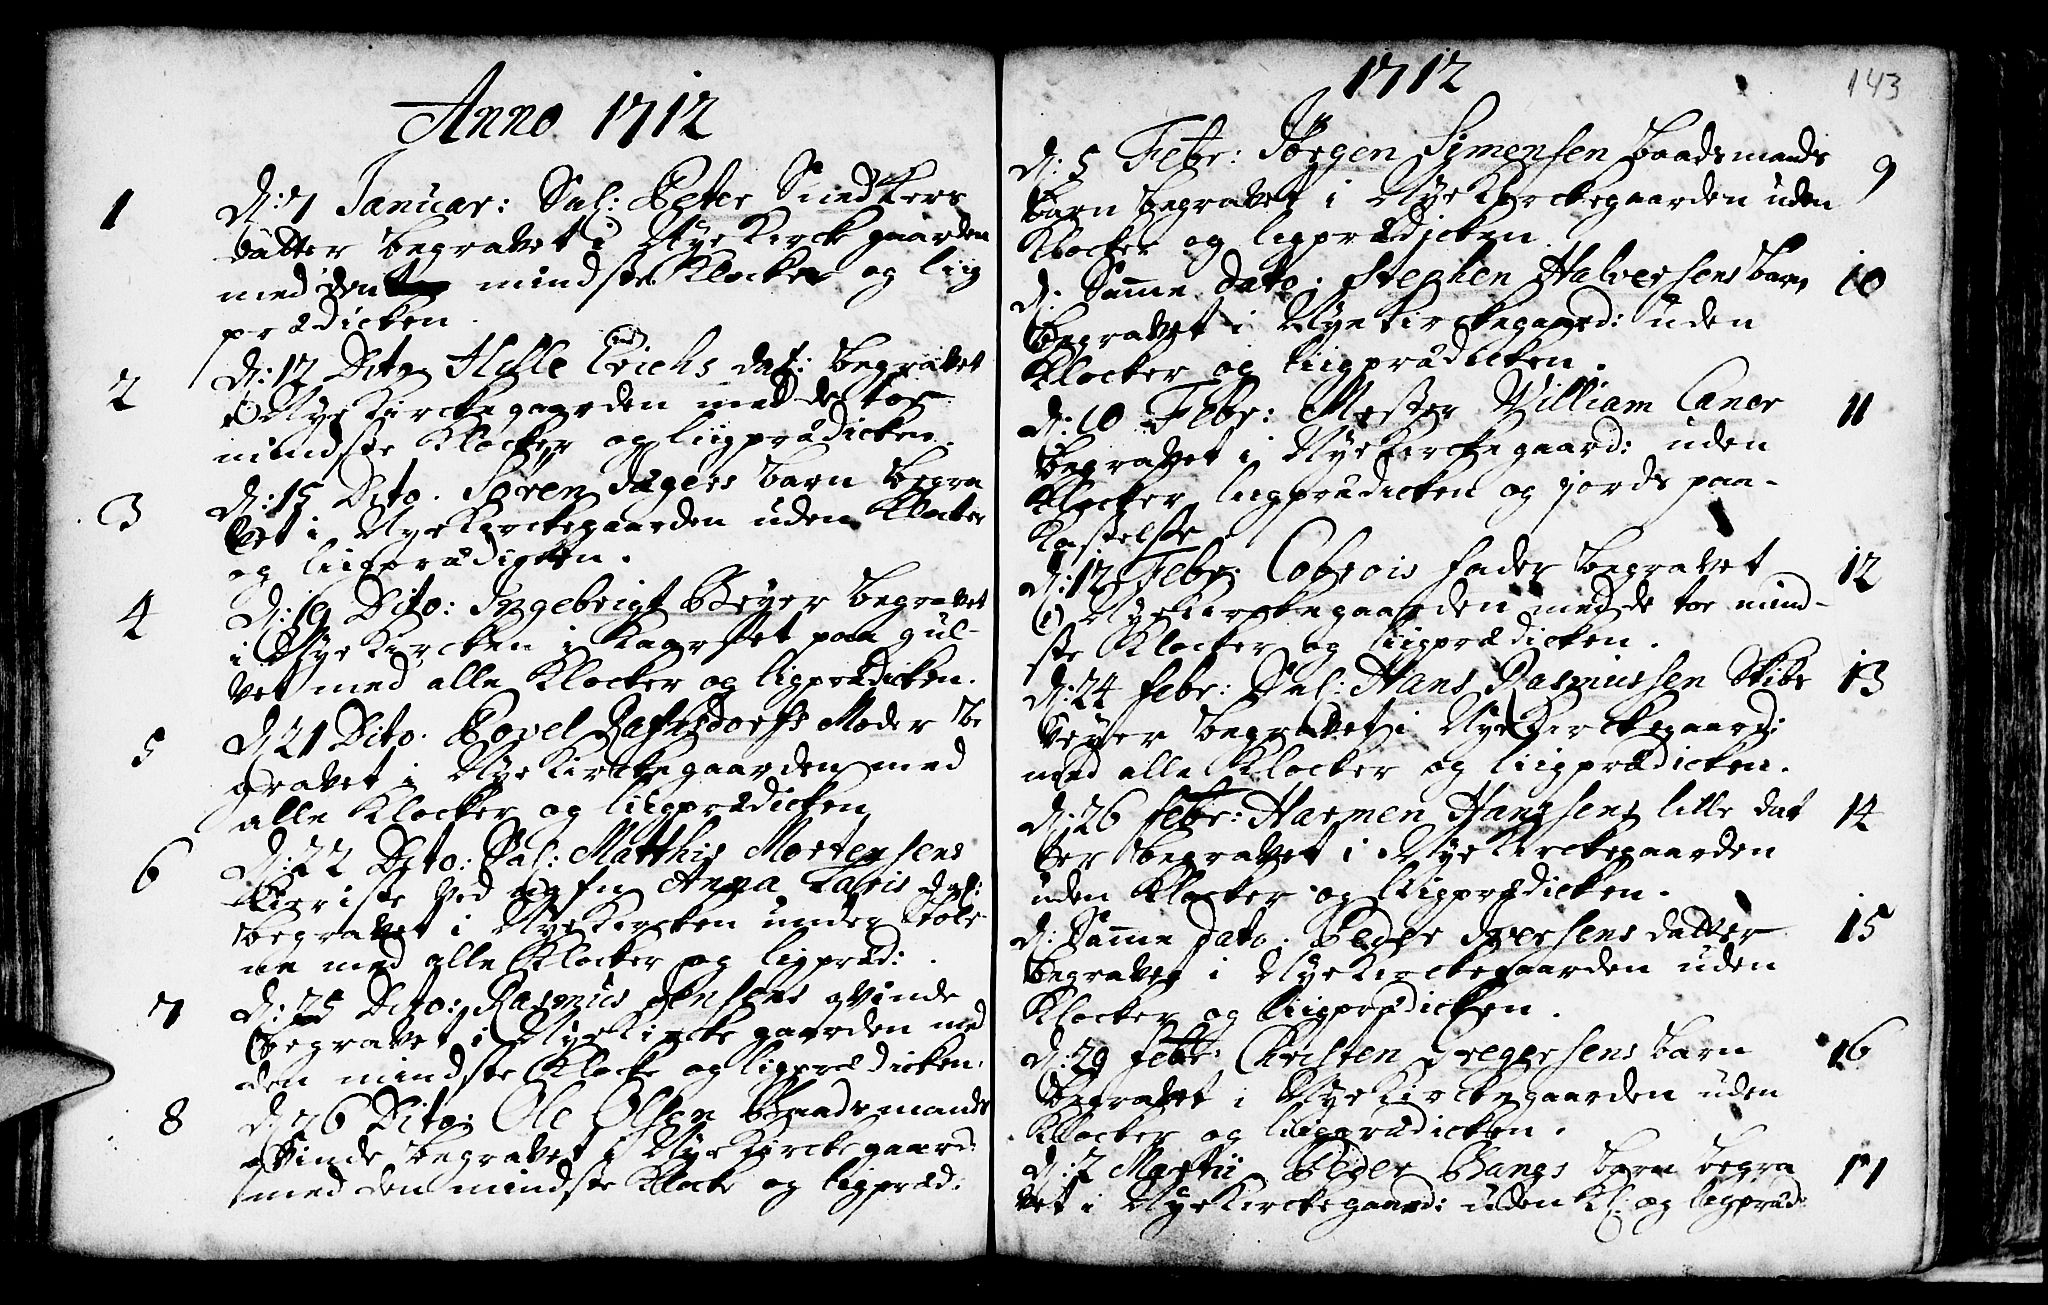 Anno 1712
1 d: 7 Januar: Sal: Peter Snedkers
datter begravet i Nye Kircke gaarden
med den mindste Klocke og lig
prædicken.
2 d: 12 Dito Helle Erichs dat: begravet
i Nye Kirckegaarden med de toe
mindste Klocker og liigprædicken.
3 d: 15 Dito. Søren Jægers barn begra
vet i Nye Kirckegaarden uden Klocker
og liigprædicken.
4 d: 19 Dito: Ingebrigt Beyer begravet
i Nye Kircken i Kaarset paa gul-
vet med alle Klocker og ligprædicken.
5 d 21 Dito. Povel Moder be
gravet i Nye Kirckegaarden med
alle Klocker og liigprædicken
6 d: 22 Dito: Sal: Matthis Mortensens
ved Anna Karis dat:
begravet i Nye Kircken under Stole
ne med alle Klocker og ligpræd:
7 d: 25 Dito: Rasmus Jensens qvinde
begravet i Nye Kircke gaarden med
den mindste Klocke og ligprædicken.
8 d 26 Dito: Ole Olsen Baadsmands
qvinde begravet i Nye Kirckegaard:
med den mindste Klocke og ligpræd:
1712
143
d: 5 Febr: Jørgen Simensen baadsmands 9
barn begravet i Nye Kirckegaarden uden
Klocker og ligprædicken.
d: Samme dato: Stephen Halversens barn 10
begravet i Nye Kirckegaard: uden
Klocker og liigprædicken.
d: 10 Febr: Mester William Caner 11
begravet i Nye Kirckegaard: uden
Klocker, liigprædicken og jords paa-
kastelse
d: 12 Febr: Cobrois fader begravet 12
i Nye Kirckegaarden med de toe mind-
ste Klocker og liigprædicken.
d: 24 febr: Sal: Hans Rasmussen Skibs 13
begravet i Nye Kirckegaard:
med alle Klocker og liigprædicken.
d: 26 febr: Harmen Hansens lille dat 14
ter begravet i Nye Kirckegaarden
uden Klocker og liigprædicken.
d: Samme dato. Peder Iversens datter 15
begravet i Nye Kirckegaarden uden
Klocker og liigprædicken.
d: 29 febr: Christen Gregersens barn 16
begravet i Nye Kirckegaarden uden
Klocker og liigprædicken.
d: 7 Martii Peder Bangs barn begra 17
vet i Nye Kirckegaard: uden Kl: og ligpræd: